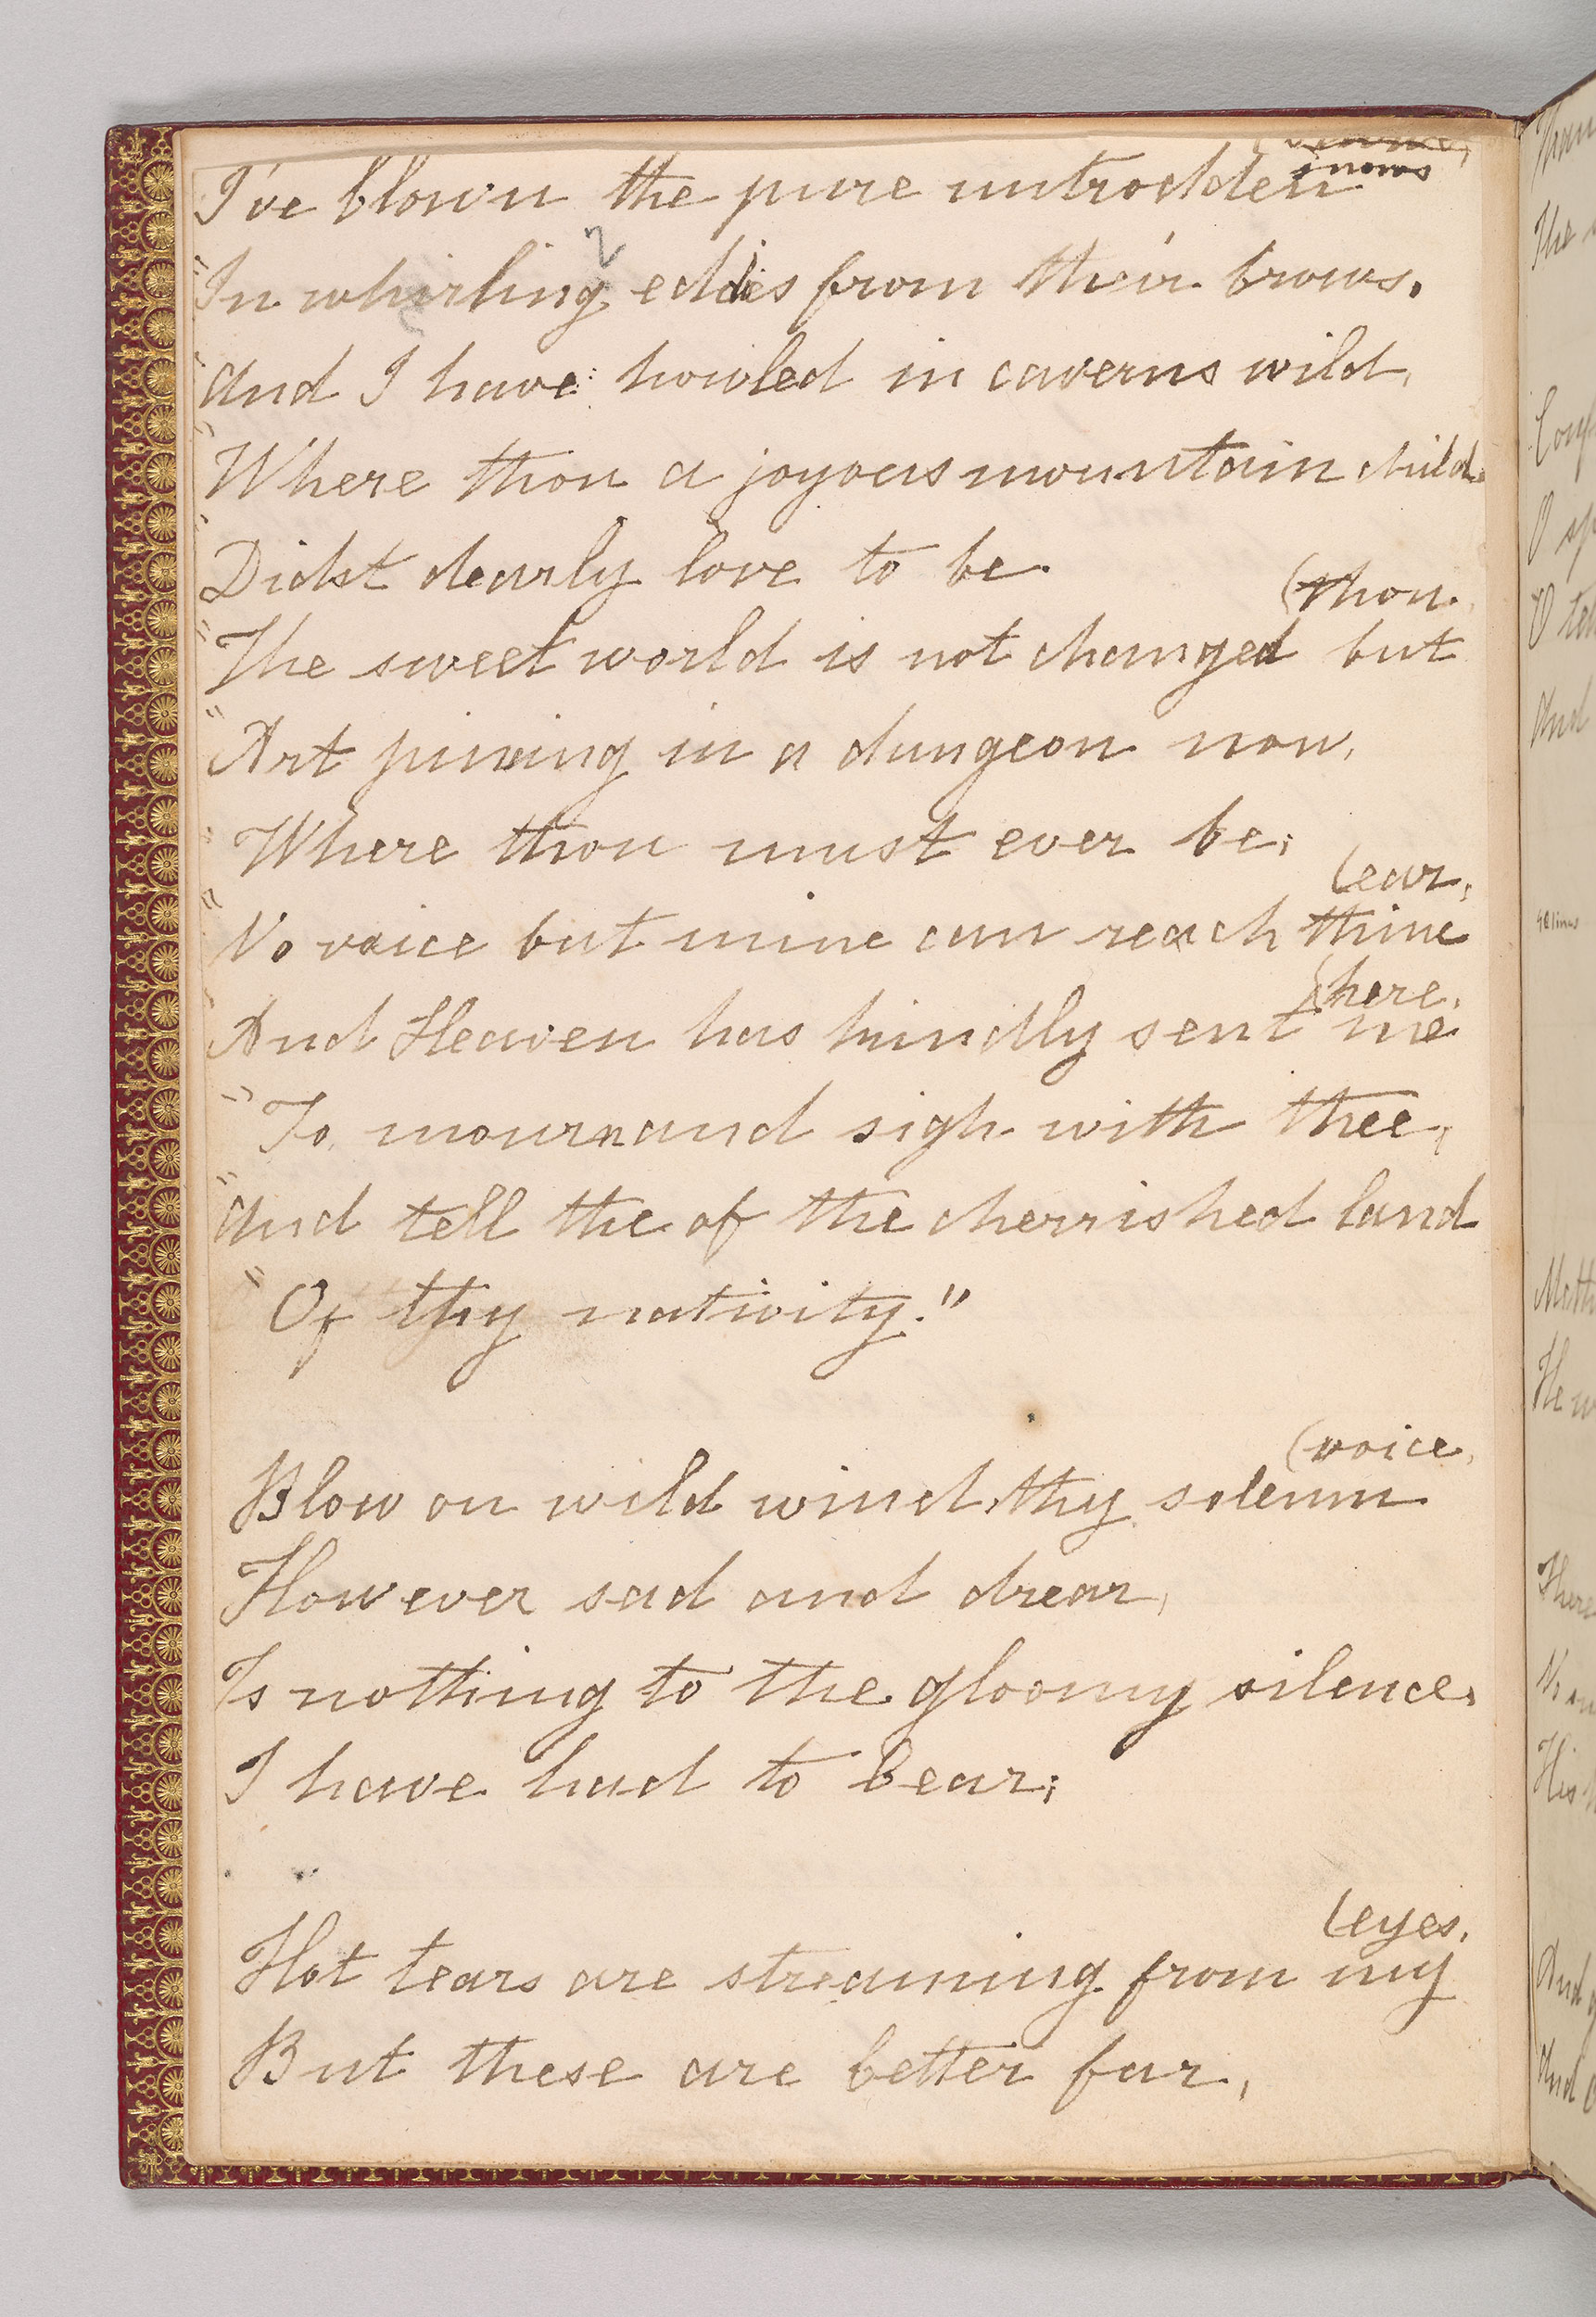 snows
I've blown the pure untrodden
"In whirling eddies from their brows.
"And I have howled in caverns wild,
"Where thou a joyous mountain child
"Didst dearly love to be.
(thou.
"The sweet world is not changed but
"Art pining in a dungeon now,
"Where thou must ever be;
(ear,
"No voice but mine can reach thine
(here.
"And Heaven has kindly sent me
"To mourn and sigh with thee,
"And tell the of the cherrished land
"Of thy nativity."
(voice,
Blow on wild wind, thy solemn
However sad and drear,
Is nothing to the gloomy silence,
I have had to bear;
(eyes,
Hot tears are streaming from my
But these are better far,